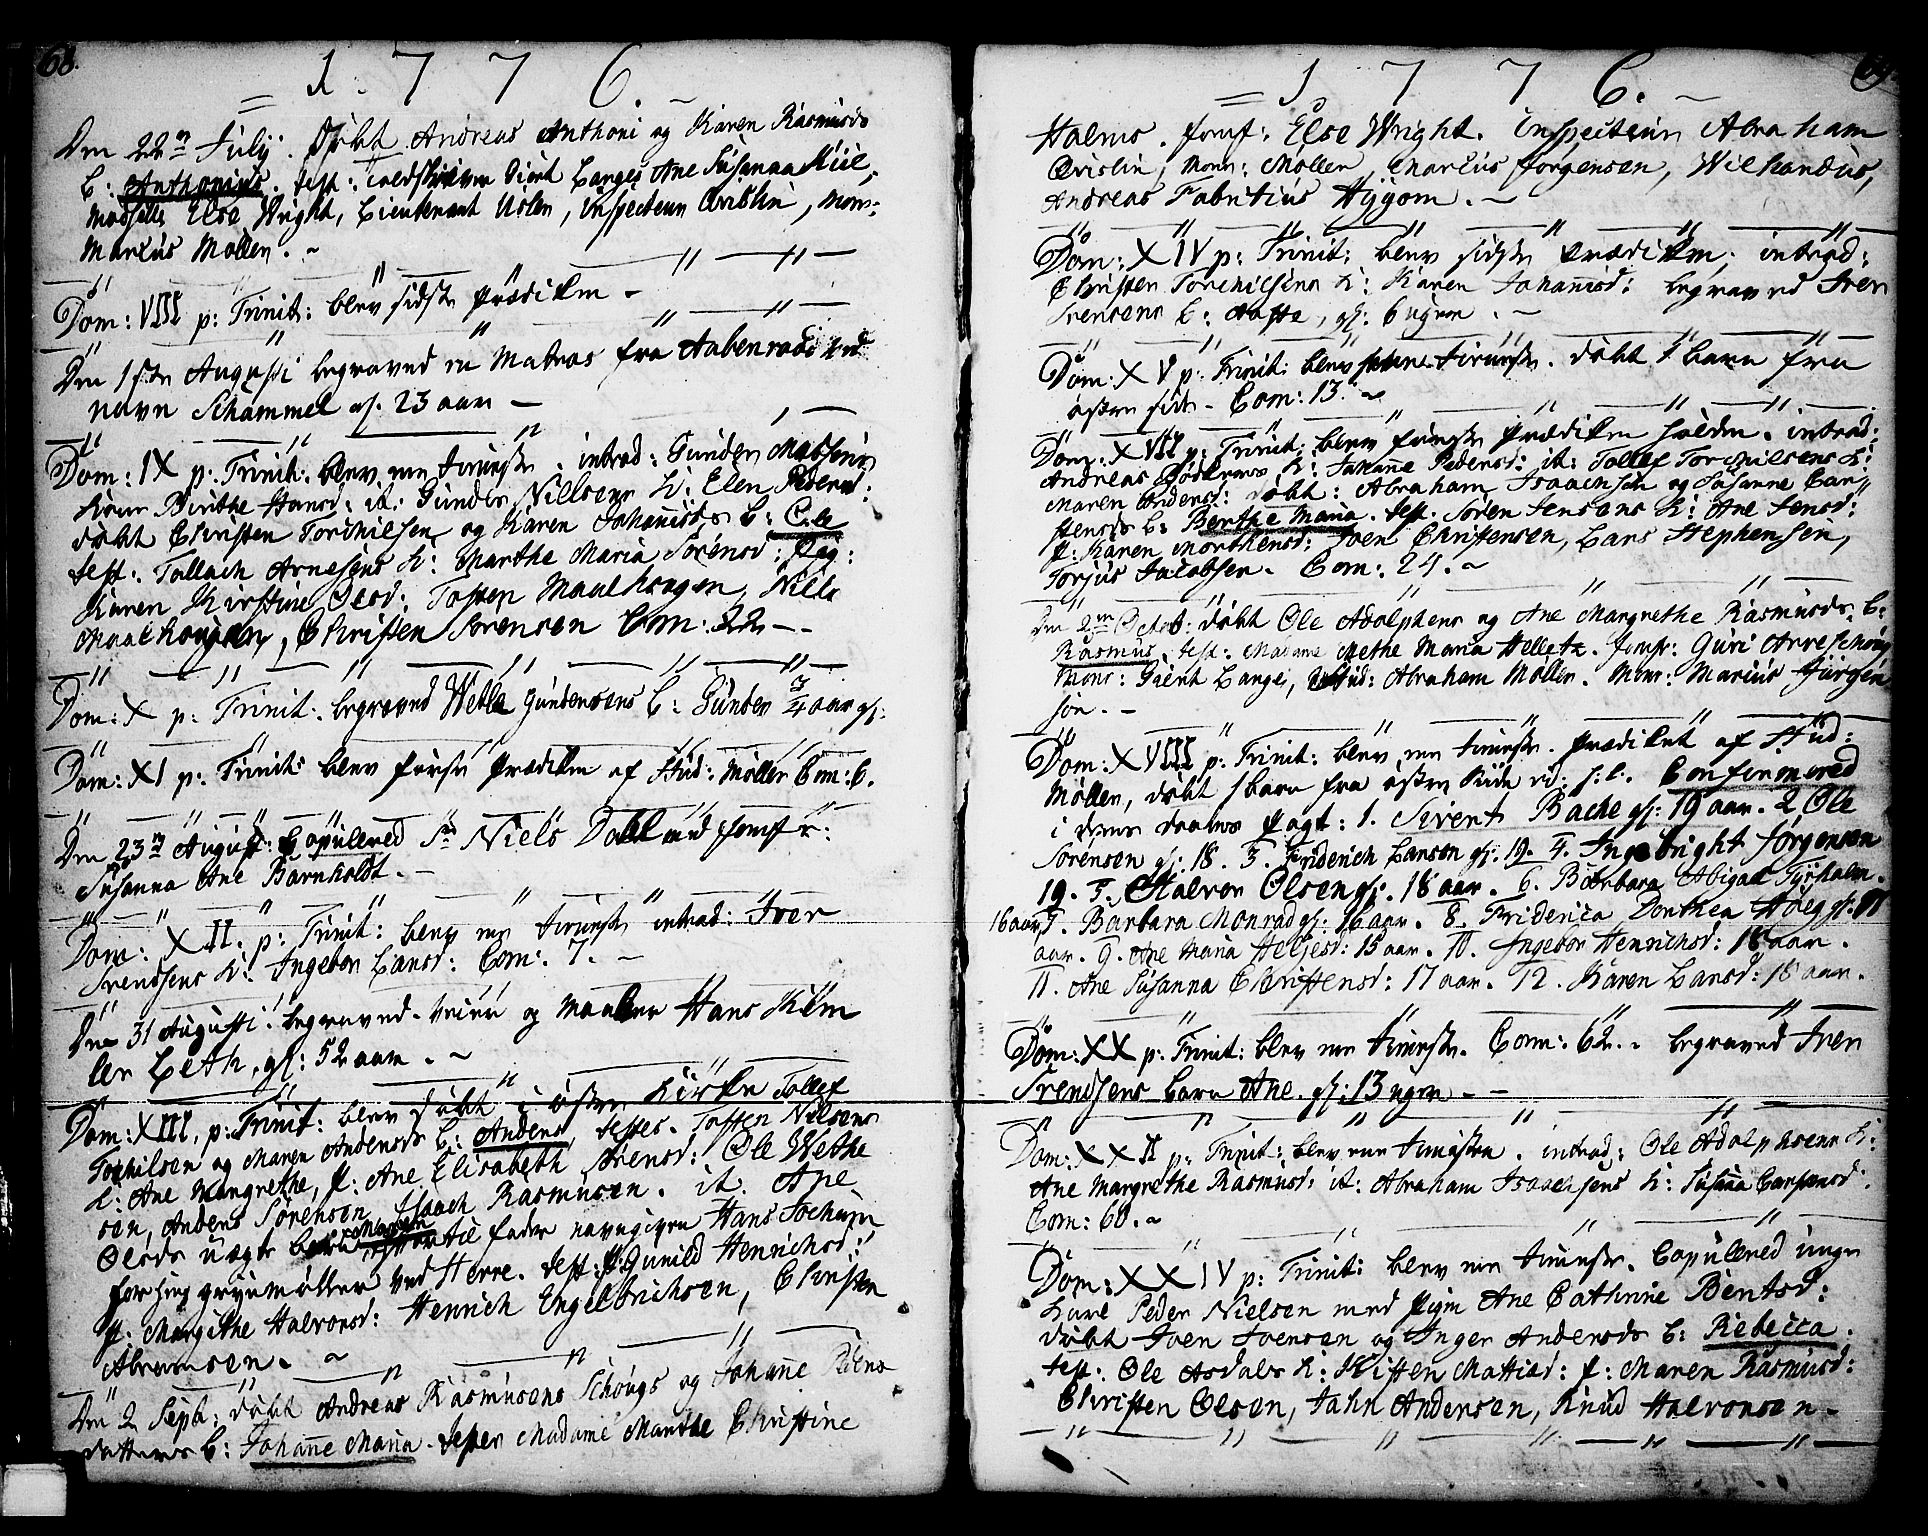 68.
= 1. 7 7 6. ~
Den 22n July. Døbt Andreas Anthoni og Karen Rasmusds
b: Anthonius. test: Giert Langes Ane Susanna Kiil,
Madselle Else Wright, Lieutenant Uslen, Inspecteur Qvislin, Mon:
Marcus Møller. ~
Dom: VIII p: Trinit: blev sidste prædiken -
Den 1ste Augusti begraved en Matros fra Aabenraae ved
navn Schammel gl. 23 aar -
Dom: IX p: Trinit: blev ren tieneste. introd: Gunder Madsens
kone Birthe Hansd: it: Gunder Nielsens K: Elen Pedersd:
døbt Christen Torchilsen og Karen Johanisds b: Ole
test: Tallach Arnesens K: Marthe Maria Sørensd: Pag:
Karen Kirstine Olsd: Tosten Maalhougen, Niels
Maalhougen, Christen Sørensen Com: 22 - -
Dom: X p: Trinit: begraved Wetle Gundersens b: Gunder 3/4 aar gl:
Dom: XI p: Trinit: blev første prædiken af Stud: Møller Com: 6.
Den 23n August: Copulered Sr. Niels Dahl med Jomfr:
Susanna Ane Barnholdt. -
Dom: XII. p: Trinit: blev ren tieneste introd: Iver
Svendsens K: Ingebor Larsd: Com: 7. -
Den 31 Augusti begraved Veier og Maaler Hans Kilm
ler Leth, gl: 52 aar. ~
Dom: XIII. p: Trinit: blev døbt i østre Kirke Tollef
Torchilsen og Maren Andersds b: Anders, testes. Tosten Nilsens
K: Ane Margrethe, P: Ane Elisabeth Sørensd: Ole Wethe
sen, Anders Sørensen, Isaach Rasmusen. it. Ane
Olsds uægte barn Maren, til fader navngiven Hans Jochum
ved Herre. test: P: Gunild Henrichsd:
P. Margithe Halvorsd: Henrich Engelbrichsen, Christen
Abramsen. ~
Den 2 Septb: døbt Andreas Rasmusens Schougs og Johanne Peders
datters b: Johanne Maria. testes Madame Marthe Christine
69.
= 1 7 7 6. ~
Holms. Jomf: Else Wright. Inspecteur Abraham
Qvislin, Mons: Møller Marcus Jørgensen, Wilhandus,
Andreas Fabritius Hygom. ~
Dom: XIV p: Trinit: blev sidste prædiken, introd:
Christen Torchilsens K: Karen Johanisd: begraved Iver
Svensens b: Aaste, gl: 6 uger. ~
Dom: XV p: Trinit: blev tieneste. døbt 1 barn fra
østre side - Com: 13. ~
Dom: XVII p: Trinit: blev første prædiken holden. introd:
Andreas Bødkers K: Johanne Pedersd: it: Tollef Torchilsens K:
Maren Andersd: døbt: Abraham Isaachsen og Susanne Car
stensds b: Berthe Maria. test. Søren Jensens K: Ane Jensd:
P: Karen Mortensd: Sven Christensen, Lars Stephensen,
Torjus Jacobsen. Com: 24. ~
Den 2n Octob: døbt Ole Adolphsens og Ane Margrethe Rasmusds b:
Rasmus, test: Madame Methe Maria Helletz. Jomfr: Guri Arreschoug
Mons: Gient Lange, Stud: Abraham Møller. Mons: Marius Jürgen
sen. -
Dom: XVIII p: Trinit: blev ren tieneste. prædiket af Stud:
Møller, døbt 1 barn fra østre Side Confirmered
i deres daabes pagt: 1. Sivert Bache gl: 19 aar. 2 Ole
Sørensen gl: 18. 3. Friderich Larsen gl: 19. 4. Ingebright Jørgensen
19. 5. Halvor Olsen gl: 18 aar. 6. Barbara Abigael Tyrholm.
16 aar 7. Barbara Monrad gl: 16 aar. 8. Friderica Dorthea Høeg gl: 17
aar. 9. Ane Maria Heljesd: 15 aar. 10. Ingebor Henrichsd: 18 aar.
11. Ane Susanna Christensd: 17 aar. 12. Karen Larsd: 18 aar.
Dom: XX p: Trinit: blev ren tieneste. Com: 62. begraved Iver
Svendsens barn Ane. gl: 13 uger. -
Dom: XXII p: Trinit: blev ren tieneste. introd: Ole Adolphsens K:
Ane Margrethe Rasmusd: it: Abraham Isaachsens K: Susanna Carstensd:
Com: 60. ~
Dom: XXIV p: Trinit: blev ren tieneste. Copulered unge
karl Peder Nielsen med pigen Ane Cathrine Bentsd:
døbt Iver Iversen og Inger Andersds b: Rebecca.
test: Ole Asdals K: Kisten Mattisd: P: Maren Rasmusd:
Christen Olsen, Jahn Andersen, Knud Halvorsen -